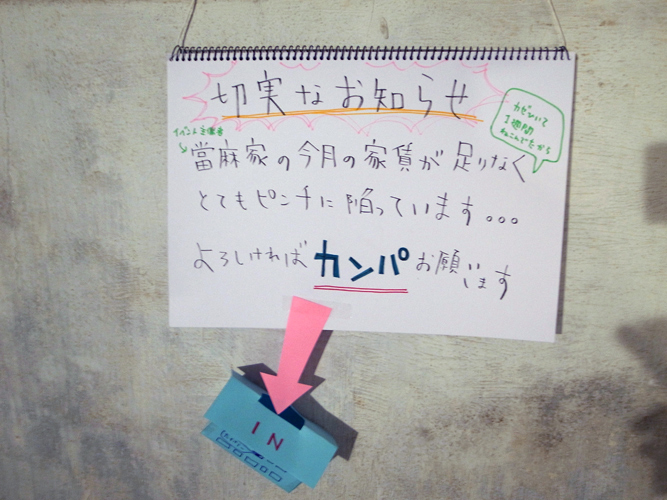 切実なお知らせ
カゼひいて
1週間
ねこんでたから
イベント主催者
當麻家の今月の家賃が足りなく
とてもピンチに陥っています。。。
よろしければカンパお願いします
IN